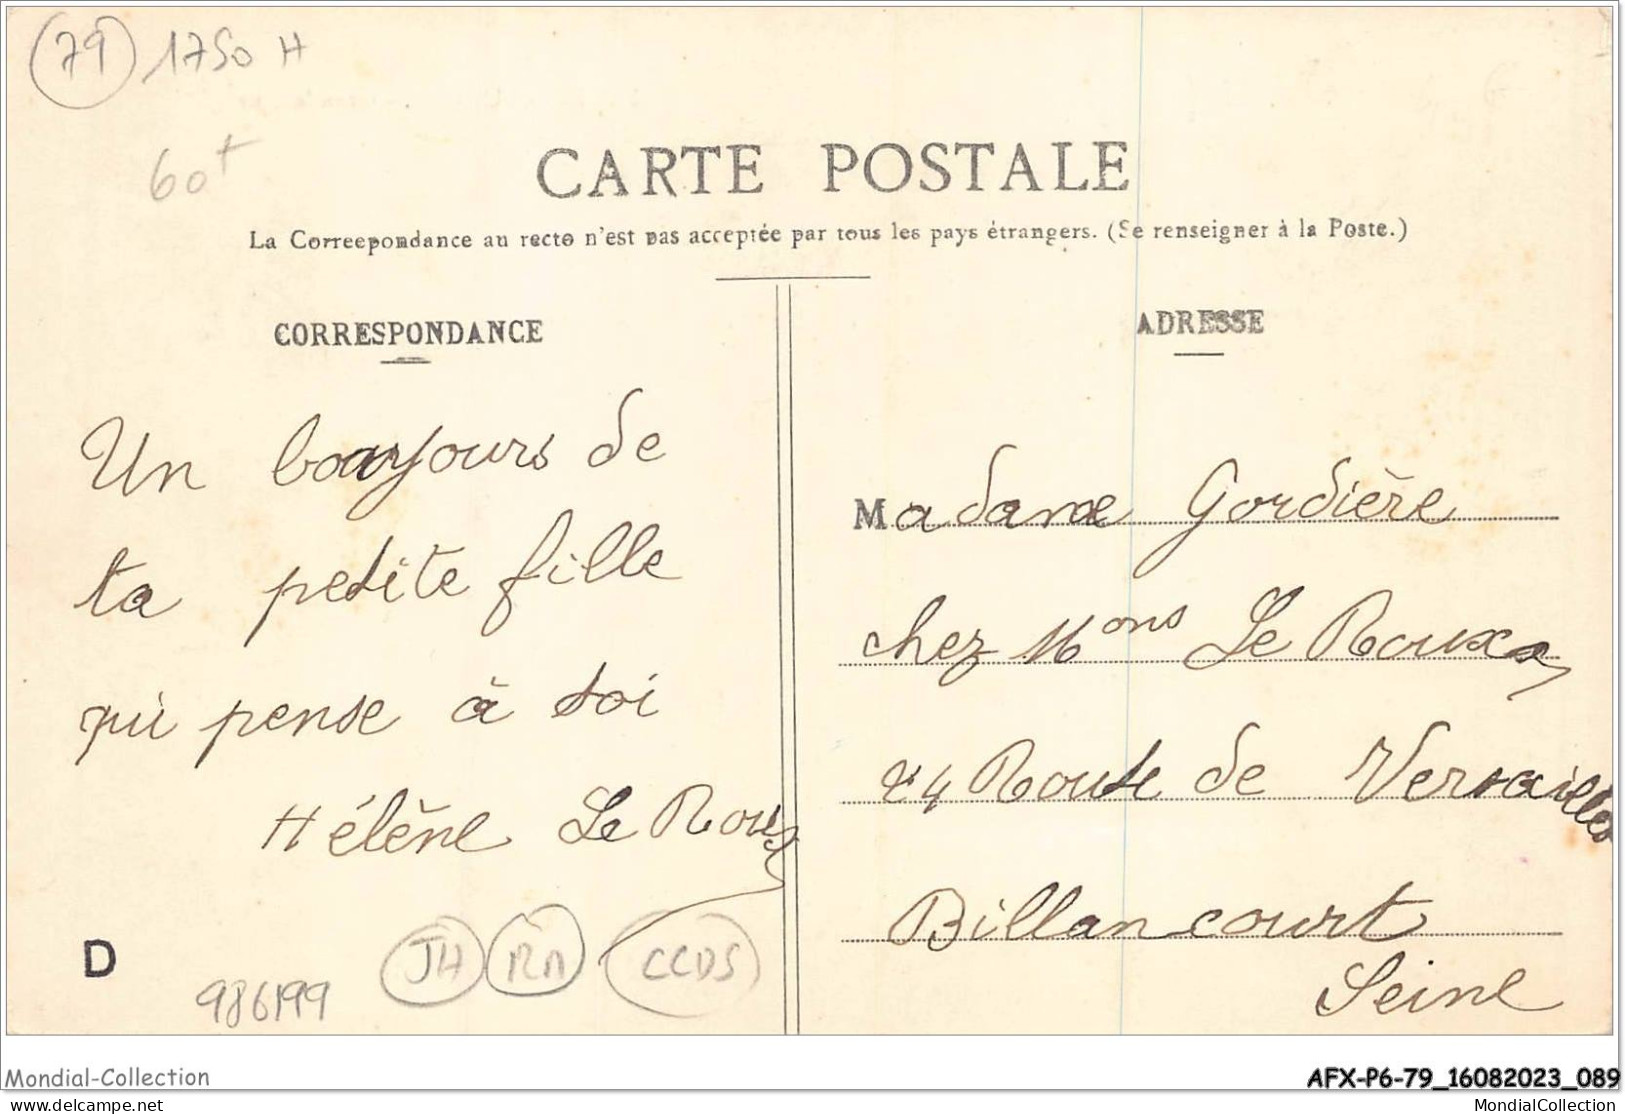 79 1750 H
60+
CARTE POSTALE
La Correspondance au recto n'est pas acceptée par tous les pays étrangers. (Se renseigner à la Poste.)
CORRESPONDANCE
Un bonjours de
ta petite fille
qui pense à toi
Hélène Le Roux
D
986199
JH RM CCDS
ADRESSE
Madame Gordière
chez Mons Le Roux
24 Route de Versailles
Billancourt
Seine
Mondial-Collection
AFX-P6-79_16082023_089
delcampe.net
MondialCollection